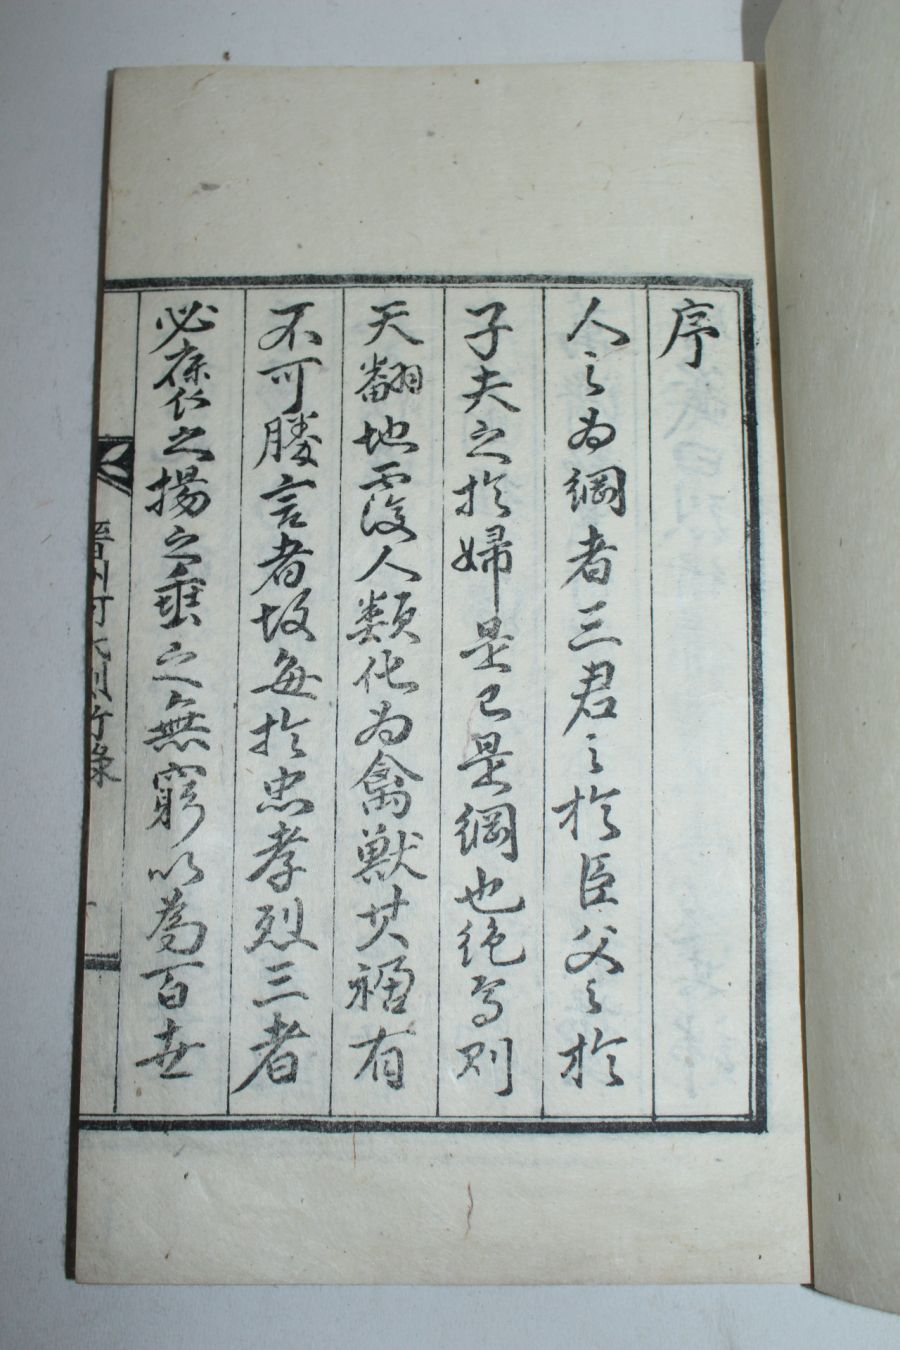 序
人之為綱者三君之於臣父之於
子夫之於婦是已是綱也絶焉則
天翻地覆人類化為禽獸其禍有
不可勝言者故每於忠孝烈三者
必褒之揚之垂之無窮以為百世
晉州河氏烈行錄